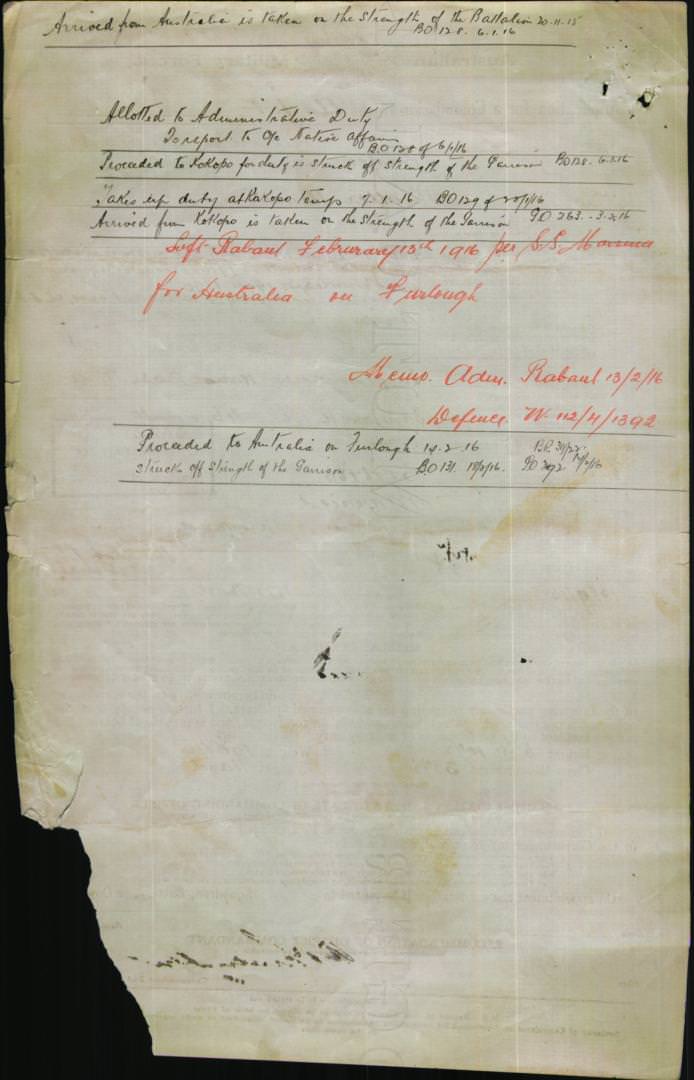 Arrived from Australia is taken on the Strength of the Battalion 20-11-15
BO 128. 6.1.16
Allotted to Administrative Duty
To report to O/c Native Affairs
BO 128 of 6/1/16
Proceeded to Kokopo for duty is struck off strength of the Garrison BO 128. 6.1.16
Takes up duty at Kakopo temp 7.1.16. BO 129 of 20/1/16
Arrived from Kokopo is taken on the Strength of the Garrison GO 263. -3-2-16
Left Rabaul Februrary 13th 1916 per S.S. Morinda
for Australia on Furlough
Memo. Adm. Rabaul 13/2/16
Defence W 112/4/1392
Proceded to Australia on Furlough 14.2.16
struck off Strength of the Garrison BO 131. 18/2/16.